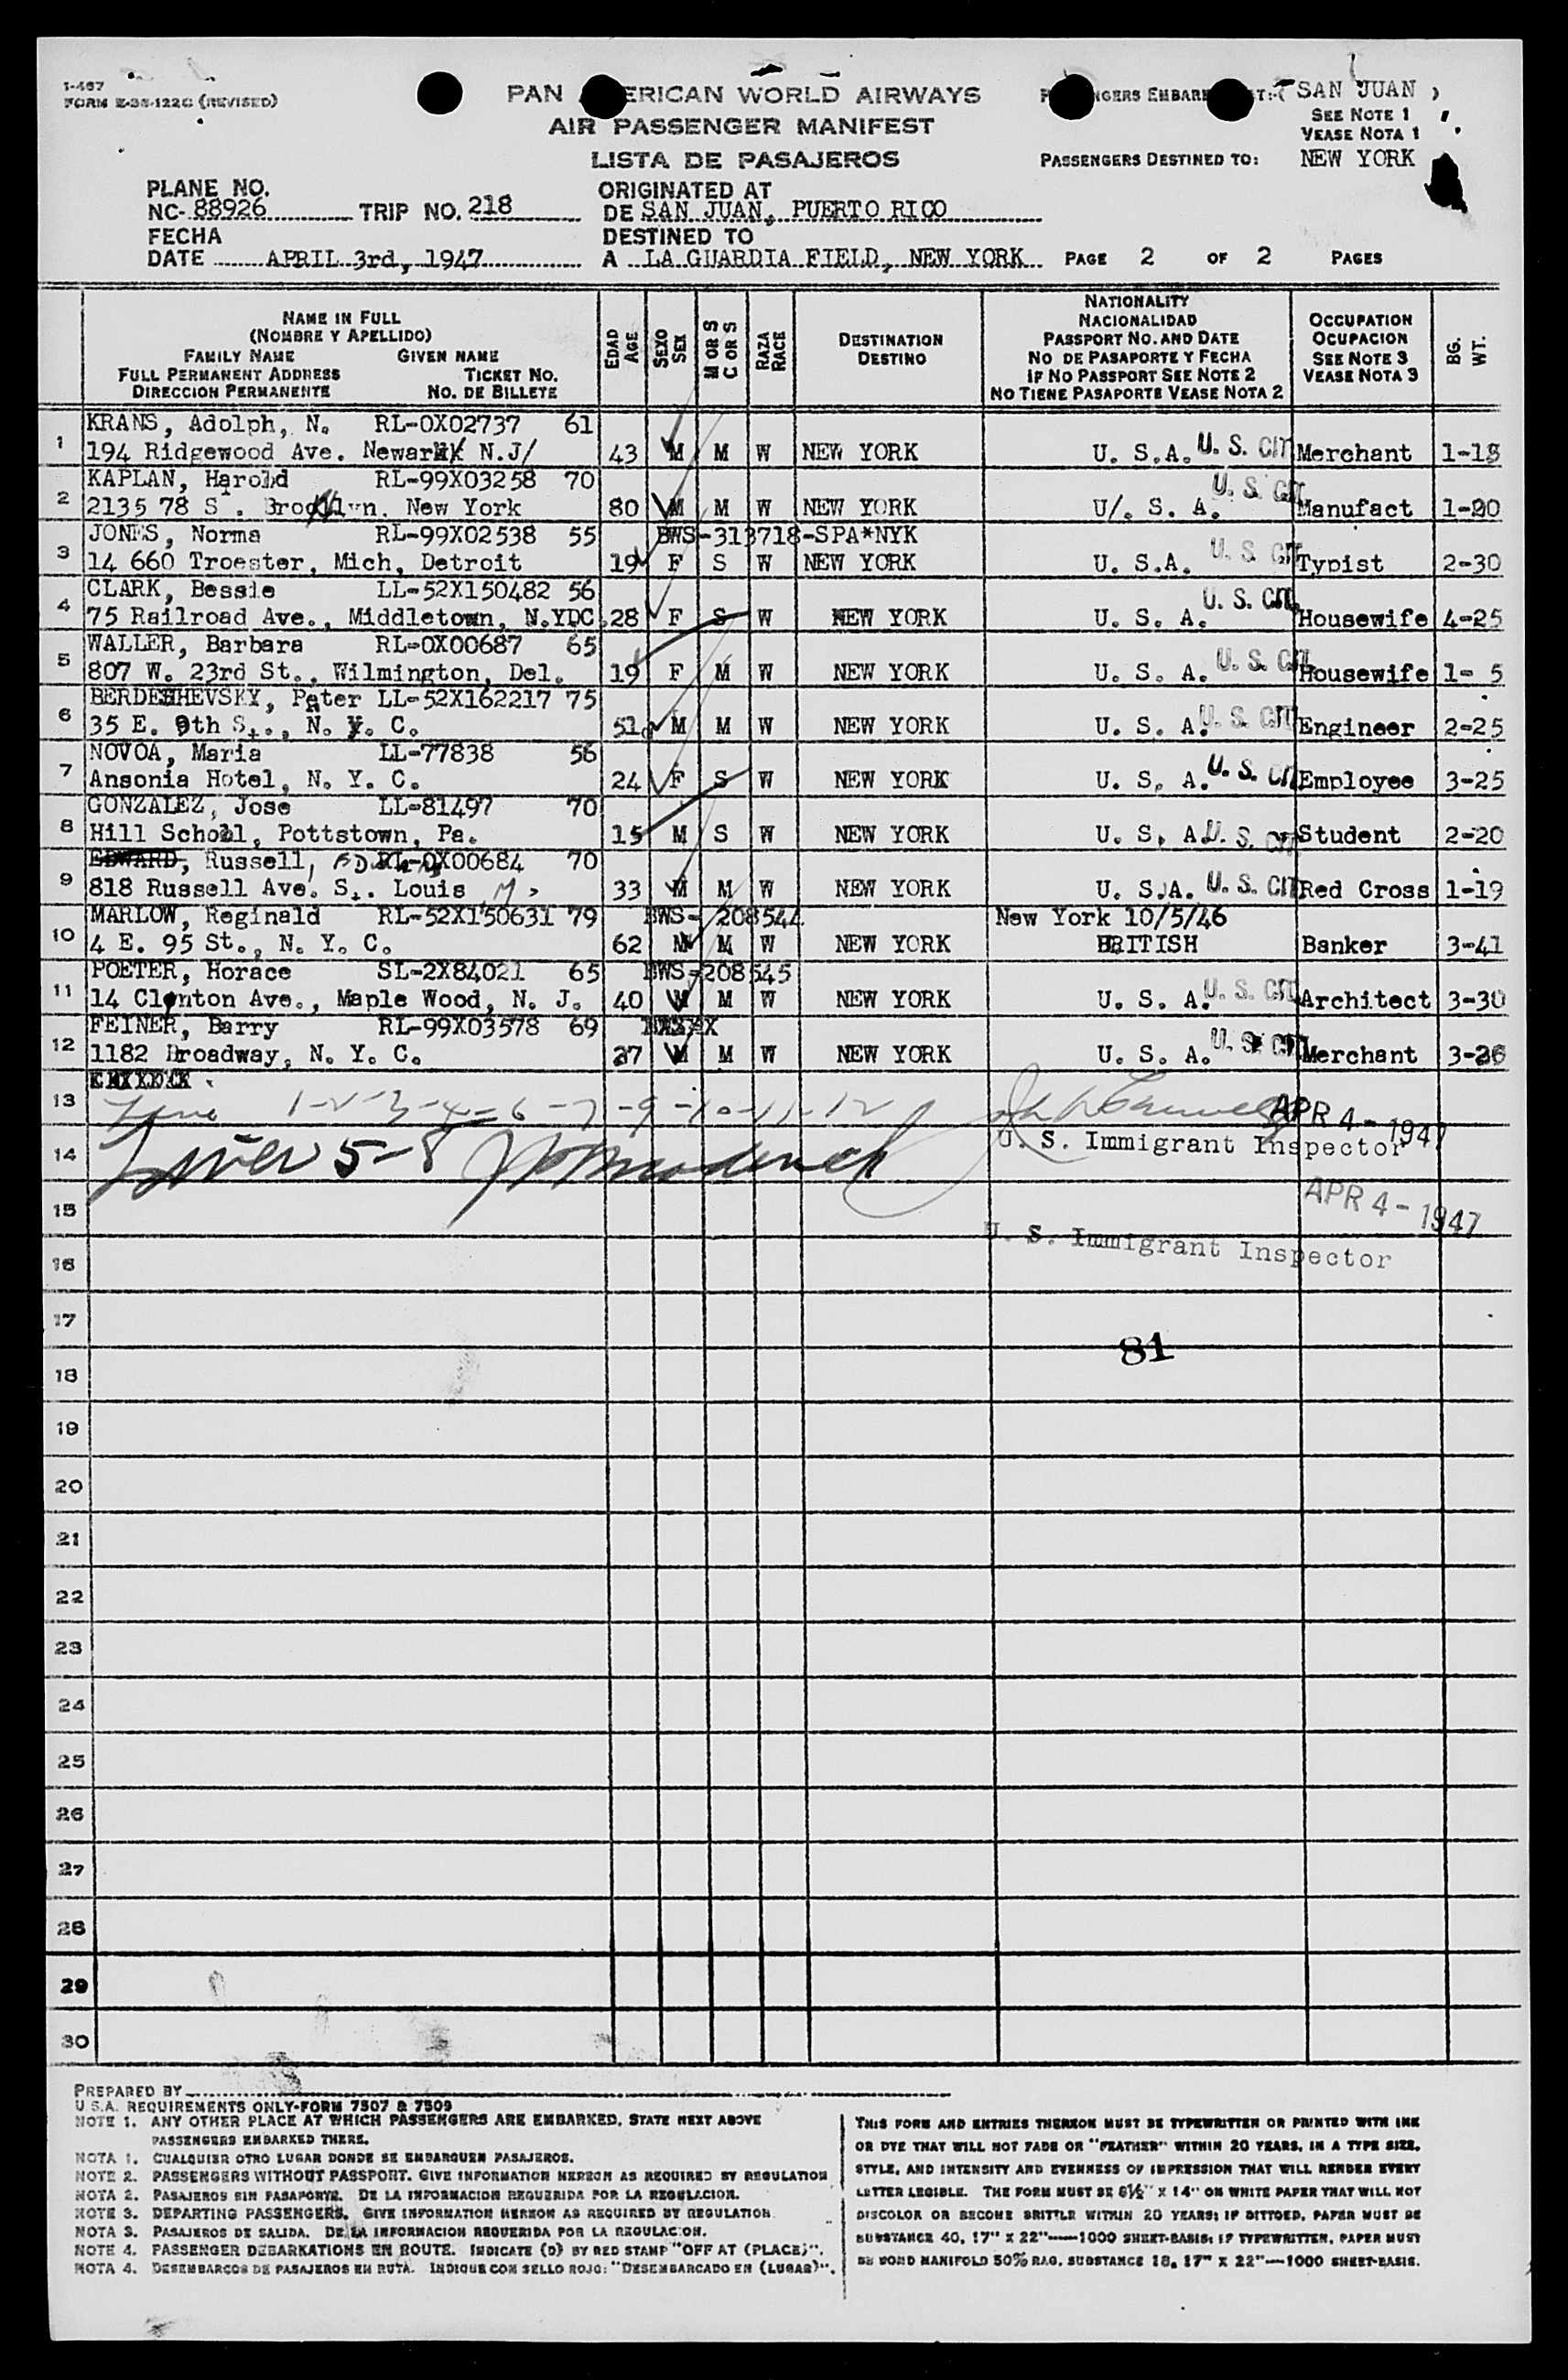 I-467
FORM E-38-122C (REVISED)
PAN AMERICAN WORLD AIRWAYS
AIR PASSENGER MANIFEST
LISTA DE PASAJEROS
SAN JUAN
SEE NOTE 1
VEASE NOTA 1
PASSENGERS DESTINED TO: NEW YORK
PLANE NO.
NC- 88926 TRIP NO. 218
ORIGINATED AT
DE SAN JUAN, PUERTO RICO
FECHA
DATE APRIL 3rd, 1947
DESTINED TO
A LA GUARDIA FIELD, NEW YORK PAGE 2 OF 2 PAGES
NAME IN FULL
(NOMBRE Y APELLIDO)
FAMILY NAME GIVEN NAME
FULL PERMANENT ADDRESS TICKET NO.
DIRECCION PERMANENTE NO. DE BILLETE
EDAD AGE
SEXO SEX
M OR S C OR S
RAZA RACE
DESTINATION
DESTINO
NATIONALITY
NACIONALIDAD
PASSPORT NO. AND DATE
NO DE PASAPORTE Y FECHA
IF NO PASSPORT SEE NOTE 2
NO TIENE PASAPORTE VEASE NOTA 2
OCCUPATION
OCUPACION
SEE NOTE 3
VEASE NOTA 3
BG. WT.
KRANS, Adolph, N. RL-0X02737 61
1 194 Ridgewood Ave. Newark N.J/ 43 M M W NEW YORK U. S.A. U. S. CIT Merchant 1-18
KAPLAN, Harold RL-99X03258 70
2 2135 78 S . Brooklyn. New York 80 M M W NEW YORK U/. S. A. U. S. CIT Manufact 1-20
JONES, Norma RL-99X02538 55 BWS-313718-SPA*NYK
3 14 660 Troester, Mich, Detroit 19 F S W NEW YORK U. S.A. U. S. CIT Typist 2-30
CLARK, Bessie LL-52X150482 56
4 75 Railroad Ave., Middletown, N.YDC. 28 F S W NEW YORK U. S. A. U. S. CIT. Housewife 4-25
WALLER, Barbara RL-0X00687 65
5 807 W. 23rd St., Wilmington, Del. 19 F M W NEW YORK U. S. A. U. S. CIT Housewife 1- 5
BERDESHEVSKY, Peter LL-52X162217 75
6 35 E. 9th St., N. Y. C. 51 M M W NEW YORK U. S. A. U. S. CIT Engineer 2-25
NOVOA, Maria LL-77838 56
7 Ansonia Hotel, N. Y. C. 24 F S W NEW YORK U. S. A. U. S. CIT Employee 3-25
GONZALEZ, Jose LL-81497 70
8 Hill School, Pottstown, Pa. 15 M S W NEW YORK U. S. A. U. S. CIT Student 2-20
EDWARD, Russell, RL-0X00684 70
9 818 Russell Ave. St. Louis M. 33 M M W NEW YORK U. S.A. U. S. CIT Red Cross 1-19
MARLOW, Reginald RL-52X150631 79 BWS- 208544 New York 10/5/46
10 4 E. 95 St., N. Y. C. 62 M M W NEW YORK BRITISH Banker 3-41
POETER, Horace SL-2X84021 65 BWS-208545
11 14 Clinton Ave., Maple Wood, N. J. 40 M M W NEW YORK U. S. A. U. S. CIT Architect 3-30
FEINER, Barry RL-99X03578 69
12 1182 Broadway, N. Y. C. 37 M M W NEW YORK U. S. A. U. S. CIT Merchant 3-26
13 Line 1-2-3-4-6-7-9-10-11-12 APR 4-1947
U. S. Immigrant Inspector
14 Lines 5-8
15 APR 4-1947
U. S. Immigrant Inspector
16
17
81
18
19
20
21
22
23
24
25
26
27
28
29
30
PREPARED BY
U S.A. REQUIREMENTS ONLY-FORM 7507 & 7509
NOTE 1. ANY OTHER PLACE AT WHICH PASSENGERS ARE EMBARKED, STATE NEXT ABOVE
PASSENGERS EMBARKED THERE.
NOTA 1. CUALQUIER OTRO LUGAR DONDE SE EMBARQUEN PASAJEROS.
NOTE 2. PASSENGERS WITHOUT PASSPORT. GIVE INFORMATION HEREON AS REQUIRED BY REGULATION
NOTA 2. PASAJEROS SIN PASAPORTE. DE LA INFORMACION REQUERIDA POR LA REGULACION.
NOTE 3. DEPARTING PASSENGERS. GIVE INFORMATION HEREON AS REQUIRED BY REGULATION
NOTA 3. PASAJEROS DE SALIDA. DE LA INFORMACION REQUERIDA POR LA REGULACION.
NOTE 4. PASSENGER DEBARKATIONS EN ROUTE. INDICATE (D) BY RED STAMP "OFF AT (PLACE)".
NOTA 4. DESEMBARCOS DE PASAJEROS EN RUTA. INDIQUE CON SELLO ROJO: "DESEMBARCADO EN (LUGAR)".
THIS FORM AND ENTRIES THEREON MUST BE TYPEWRITTEN OR PRINTED WITH INK
OR DYE THAT WILL NOT FADE OR "FEATHER" WITHIN 20 YEARS, IN A TYPE SIZE,
STYLE, AND INTENSITY AND EVENNESS OF IMPRESSION THAT WILL RENDER EVERY
LETTER LEGIBLE. THE FORM MUST BE 8½" X 14" ON WHITE PAPER THAT WILL NOT
DISCOLOR OR BECOME BRITTLE WITHIN 20 YEARS; IF DITTOED, PAPER MUST BE
SUBSTANCE 40, 17" X 22"—1000 SHEET-BASIS; IF TYPEWRITTEN, PAPER MUST
BE BOND MANIFOLD 50% RAG, SUBSTANCE 18, 17" X 22"—1000 SHEET-BASIS.